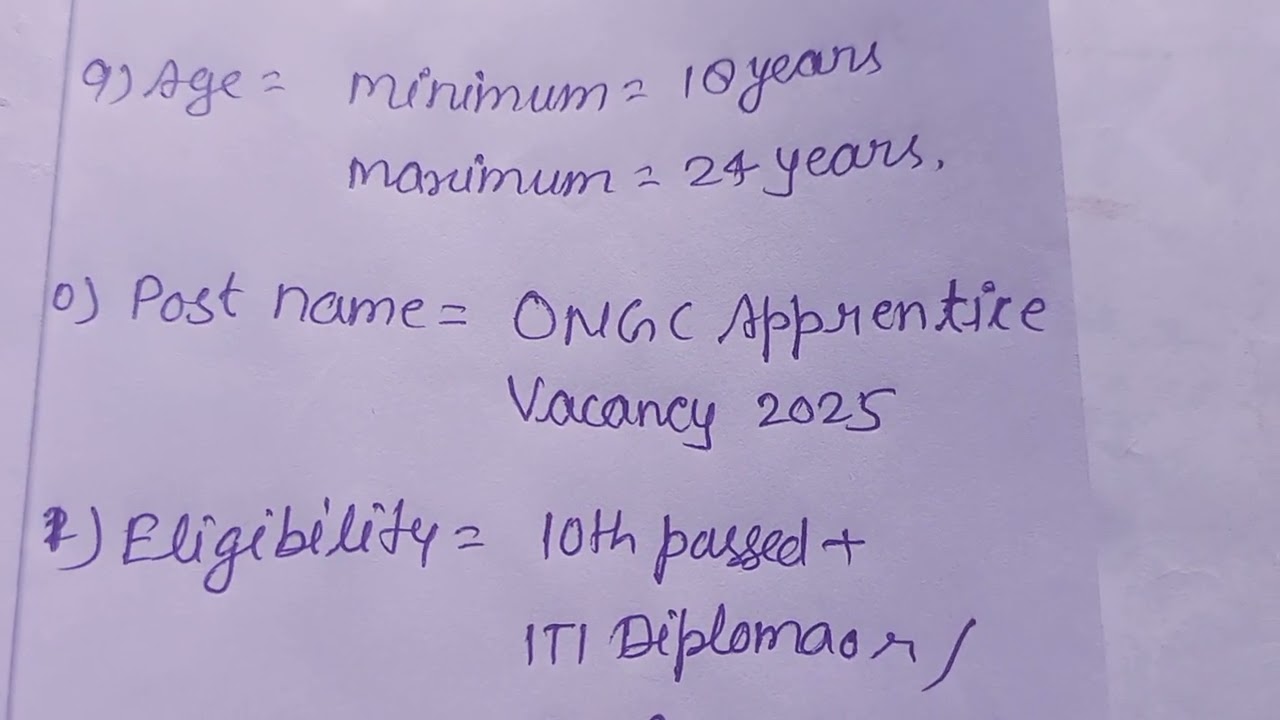 9) Age = minimum = 18 years
maximum = 24 years.
0) Post name = ONGC Apprentice
Vacancy 2025
1) Eligibility = 10th passed +
ITI Diploma or /